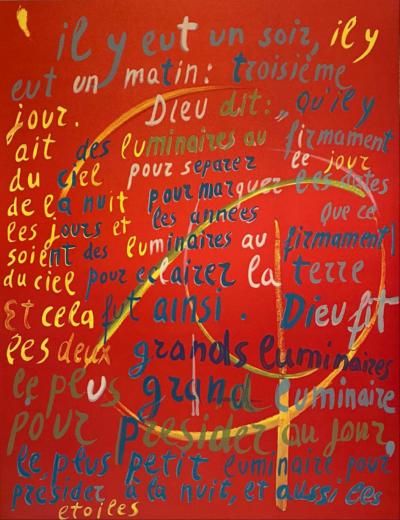 il y eut un soir, il y
eut un matin: troisième
jour. Dieu dit: „Qu'il y
ait des luminaires au firmament
du ciel pour separer le jour
de la nuit pour marquer les dates
les jours et les années que ce
soient des luminaires au firmament
du ciel pour eclairer la terre
Et cela fut ainsi. Dieu fit
les deux grands luminaires
le plus grand luminaire
pour presider au jour,
le plus petit luminaire pour
presider à la nuit, et aussi les
etoiles